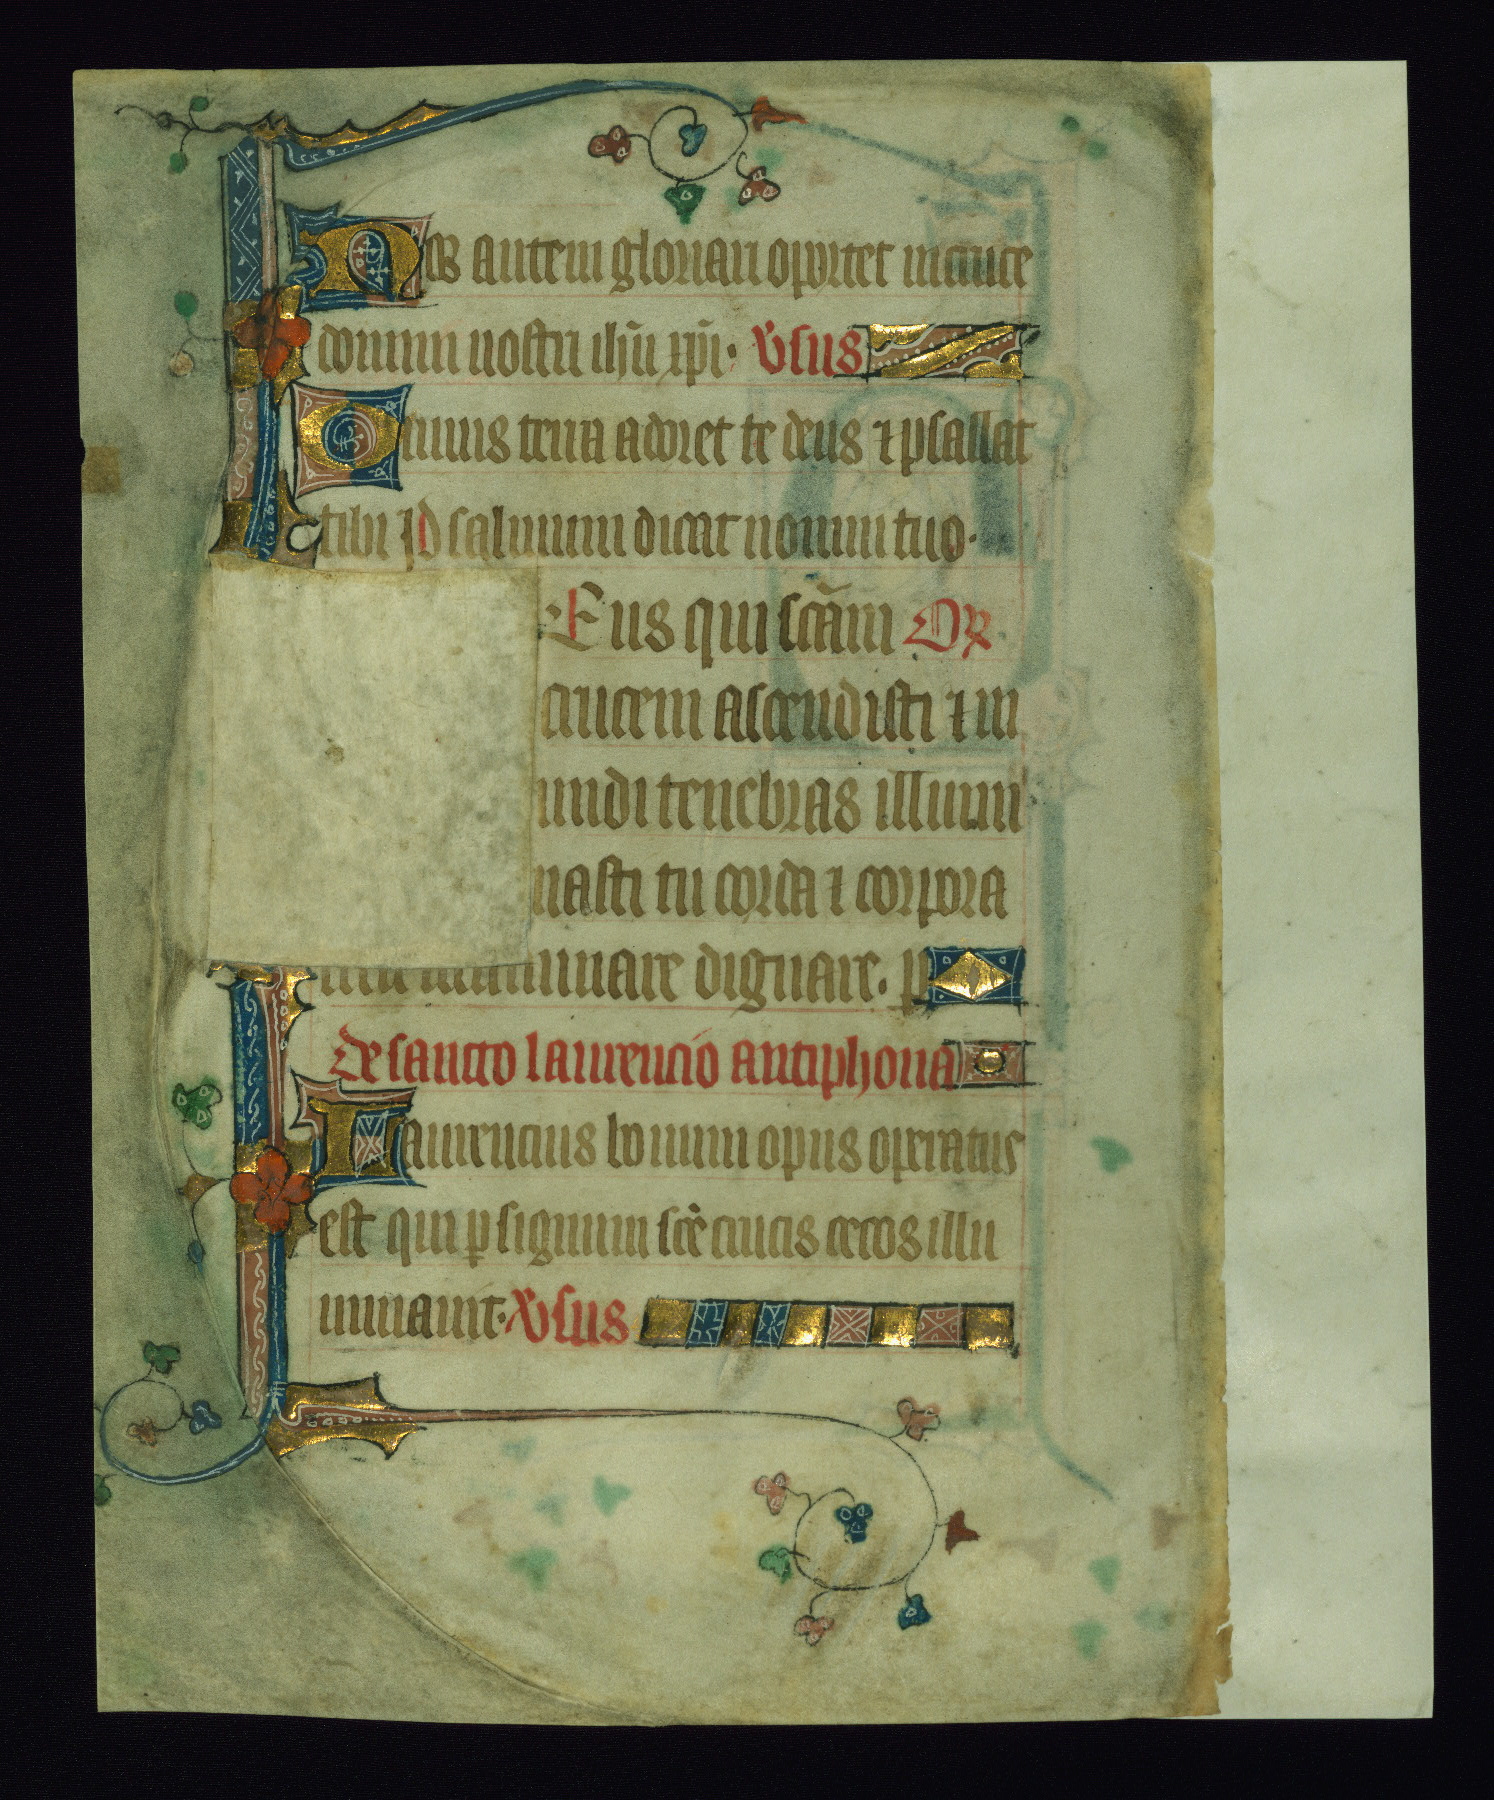 Nos autem gloriari oportet in cruce
domini nostri ihu xpi. Vsus
Omnis terra adoret te deus ⁊ psallat
tibi psalmum dicat nomini tuo.
Eus qui scām Or
crucem ascendisti ⁊ m
undi tenebras illumi
nasti tu corda ⁊ corpora
illuminare dignare. p
De sancto laurencio antiphona
Laurencius bonum opus operatus
est qui p signum scē crucis cecos illu
minauit. Vsus